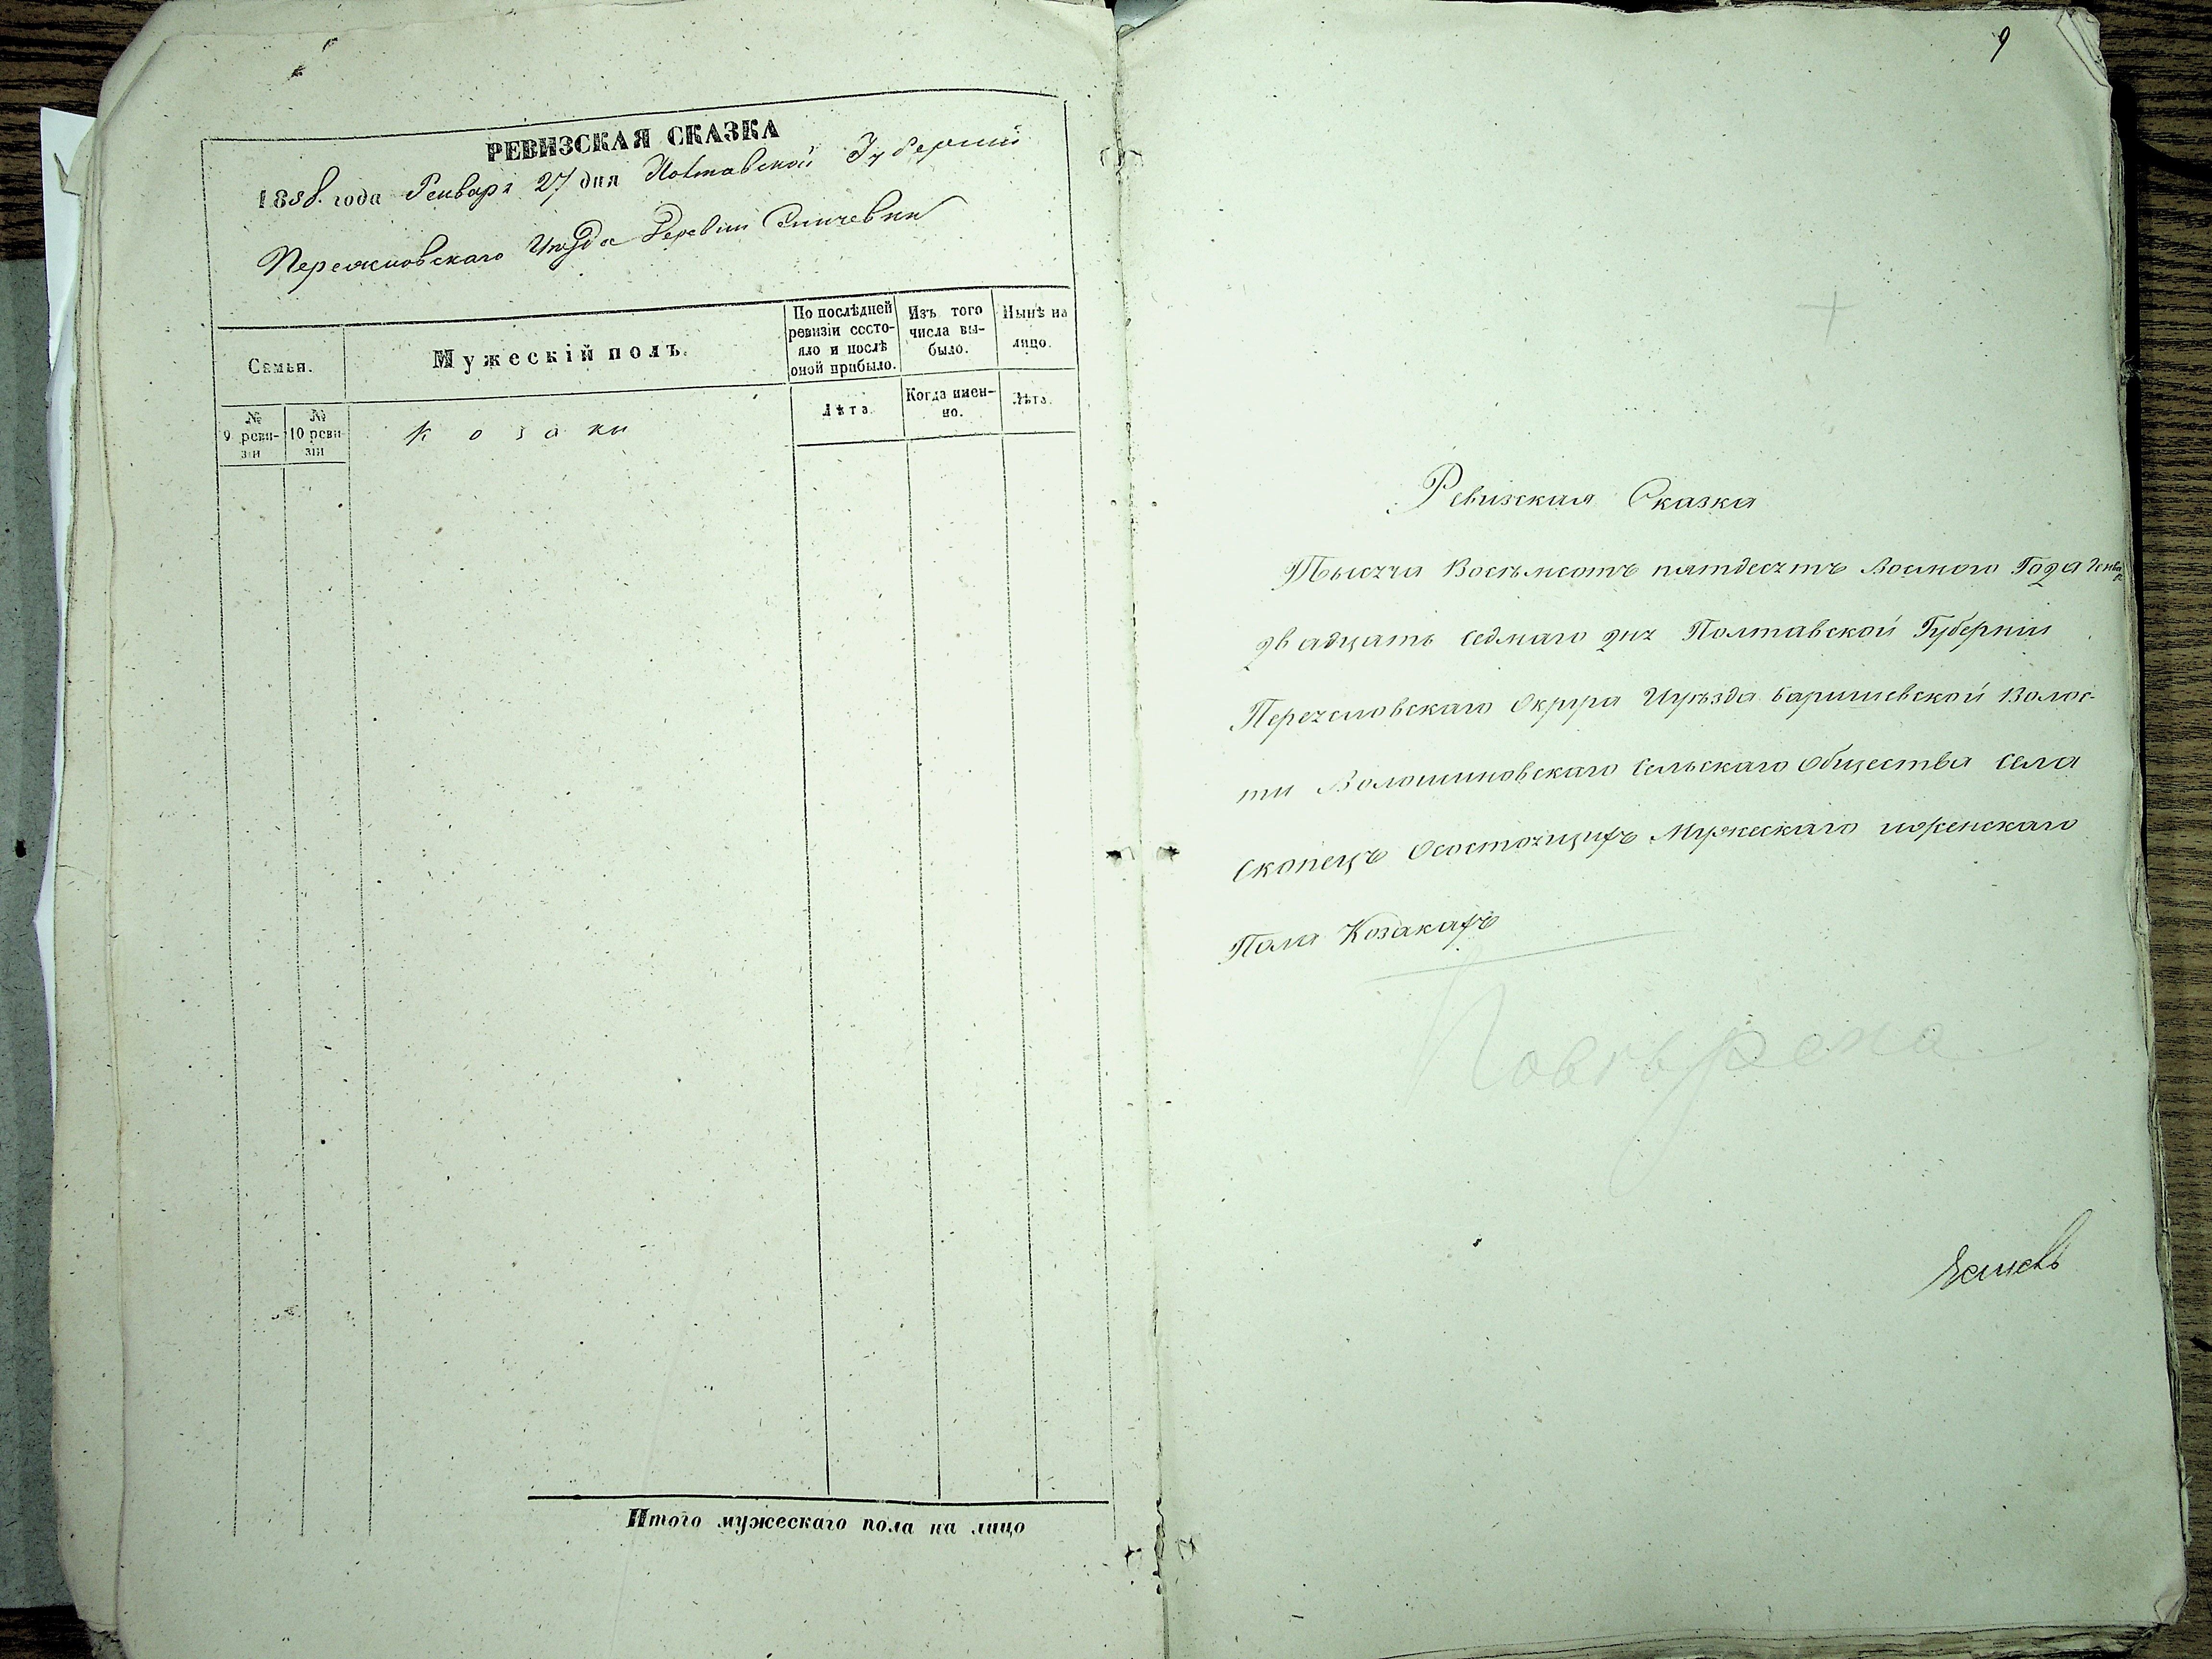 РЕВИЗСКАЯ СКАЗКА
1858. года Генваря 27 дня Полтавской Губерніи
Переяславскаго Уѣзда Деревни
Семьи.
Мужескій полъ.
По послѣдней ревизіи состояло и послѣ оной прибыло.
Изъ того числа выбыло.
Нынѣ на лицо.
№ 9 ревизіи
№ 10 ревизіи
Козаки
Лѣта.
Когда именно.
Лѣта.
Итого мужескаго пола на лицо
9
Ревизская Сказка
Тысяча Восъмсотъ пятдесятъ восмого Года Генваря
двадцать седмаго дня Полтавской Губерніи
Переясловскаго Округа Иуѣзда Баришевской Волос-
ти Волошиновскаго Сельскаго Общества Села
Скопецъ Осостоящихъ Мужескаго иженскаго
Пола Козакахъ
Повѣрена